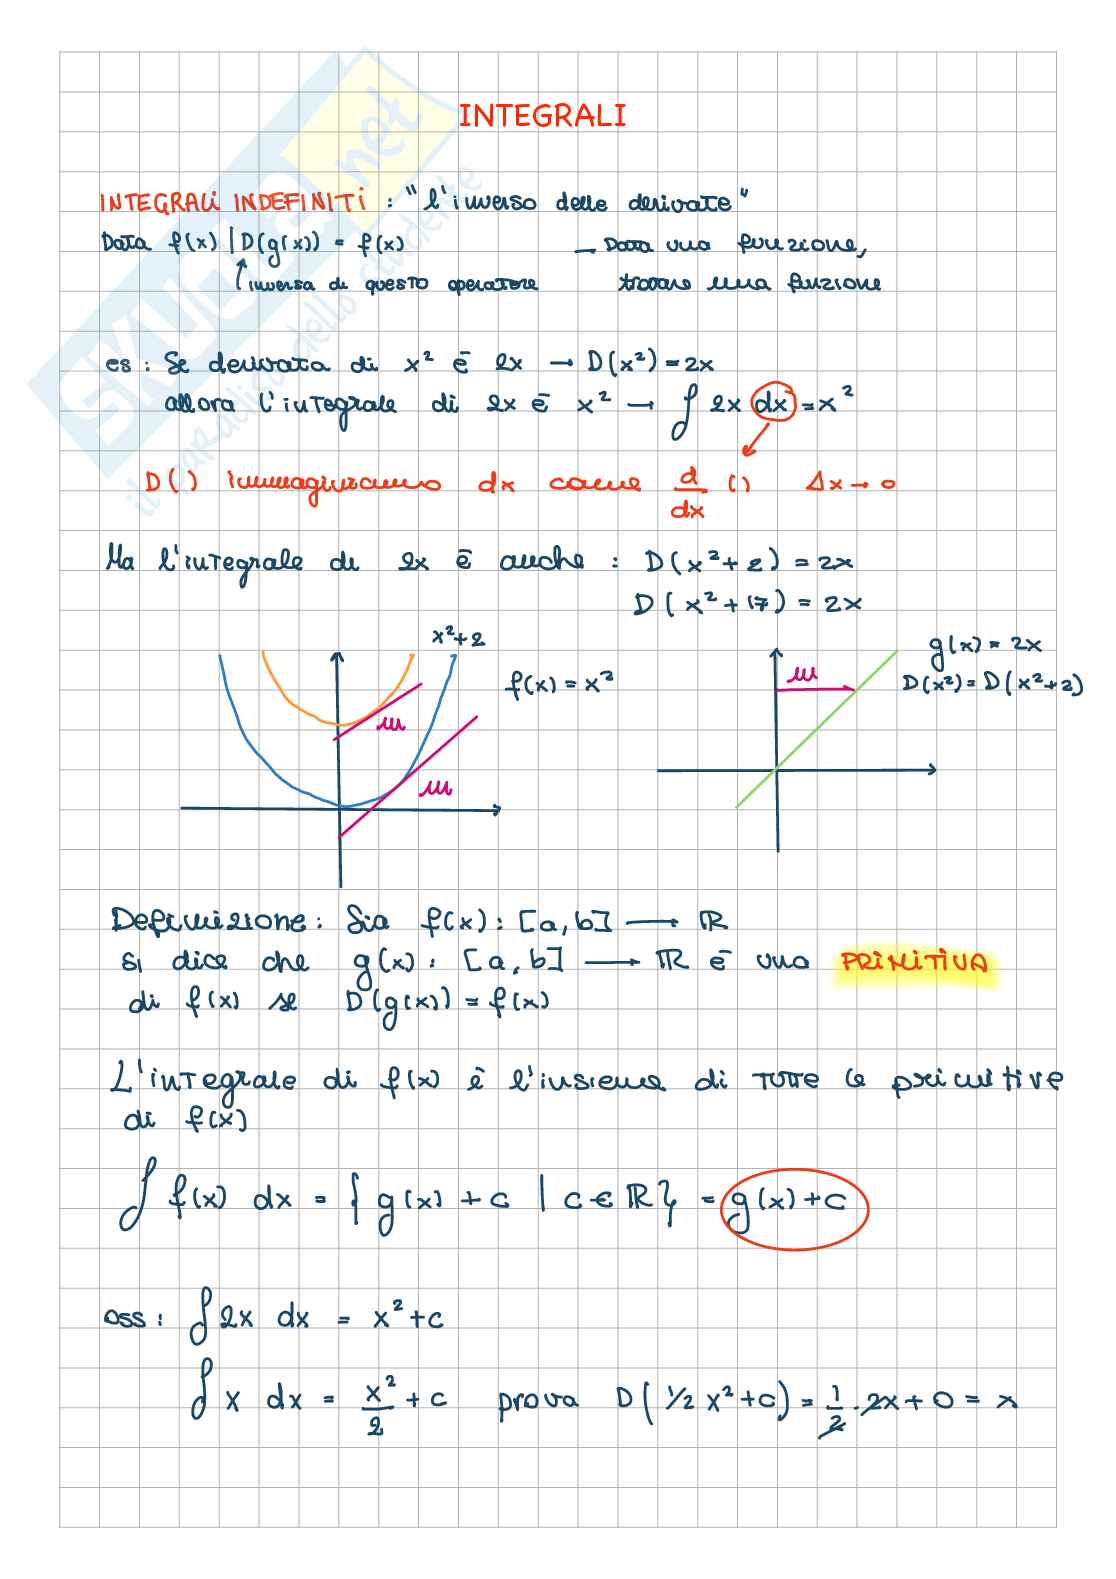 INTEGRALI
INTEGRALI INDEFINITI : "l'inverso delle derivate"
Data f(x) | D(g(x)) = f(x)
— Data una funzione,
inversa di questo operatore
trovare una funzione
es : Se derivata di x² è 2x → D(x²)=2x
allora l'integrale di 2x è x² → ∫ 2x dx = x²
D() immaginiamo dx come d/dx () Δx → 0
Ma l'integrale di 2x è anche : D(x²+2) = 2x
D(x²+17) = 2x
x²+2
f(x) = x²
m
m
g(x) = 2x
D(x²) = D(x²+2)
m
Definizione : Sia f(x) : [a,b] → ℝ
si dice che g(x) : [a,b] → ℝ è una PRIMITIVA
di f(x) se D(g(x)) = f(x)
L'integrale di f(x) è l'insieme di tutte le primitive
di f(x)
∫ f(x) dx = { g(x) + c | c ∈ ℝ } = g(x) + c
oss : ∫ 2x dx = x² + c
∫ x dx = x²/2 + c prova D(1/2 x² + c) = 1/2 · 2x + 0 = x
SKUOLA.net
il paradiso dello studente